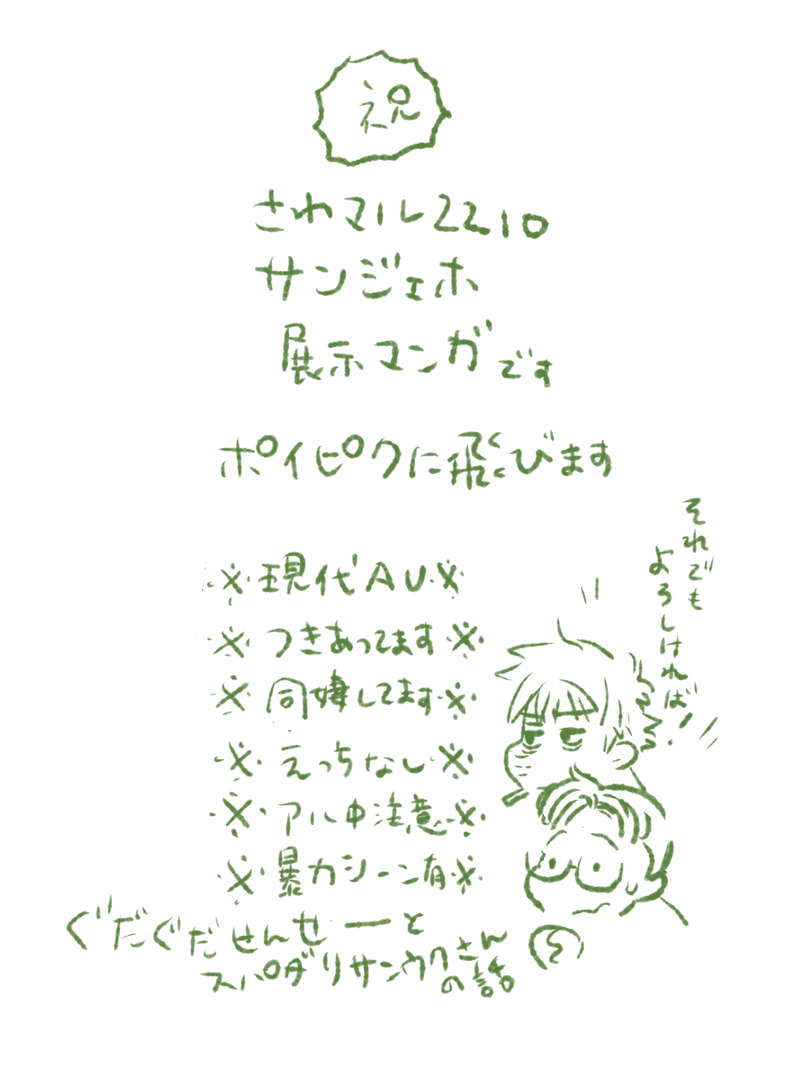 祝
さわマル2210
サンジェホ
展示マンガです
ポイピクに飛びます
※現代AU※
※つきあってます※
※同棲してます※
※えっちなし※
※アル中注意※
※暴力シーン有※
ぐだぐだせんせーと
スパダリサンウクさん
の話
それでも
よろしければ!